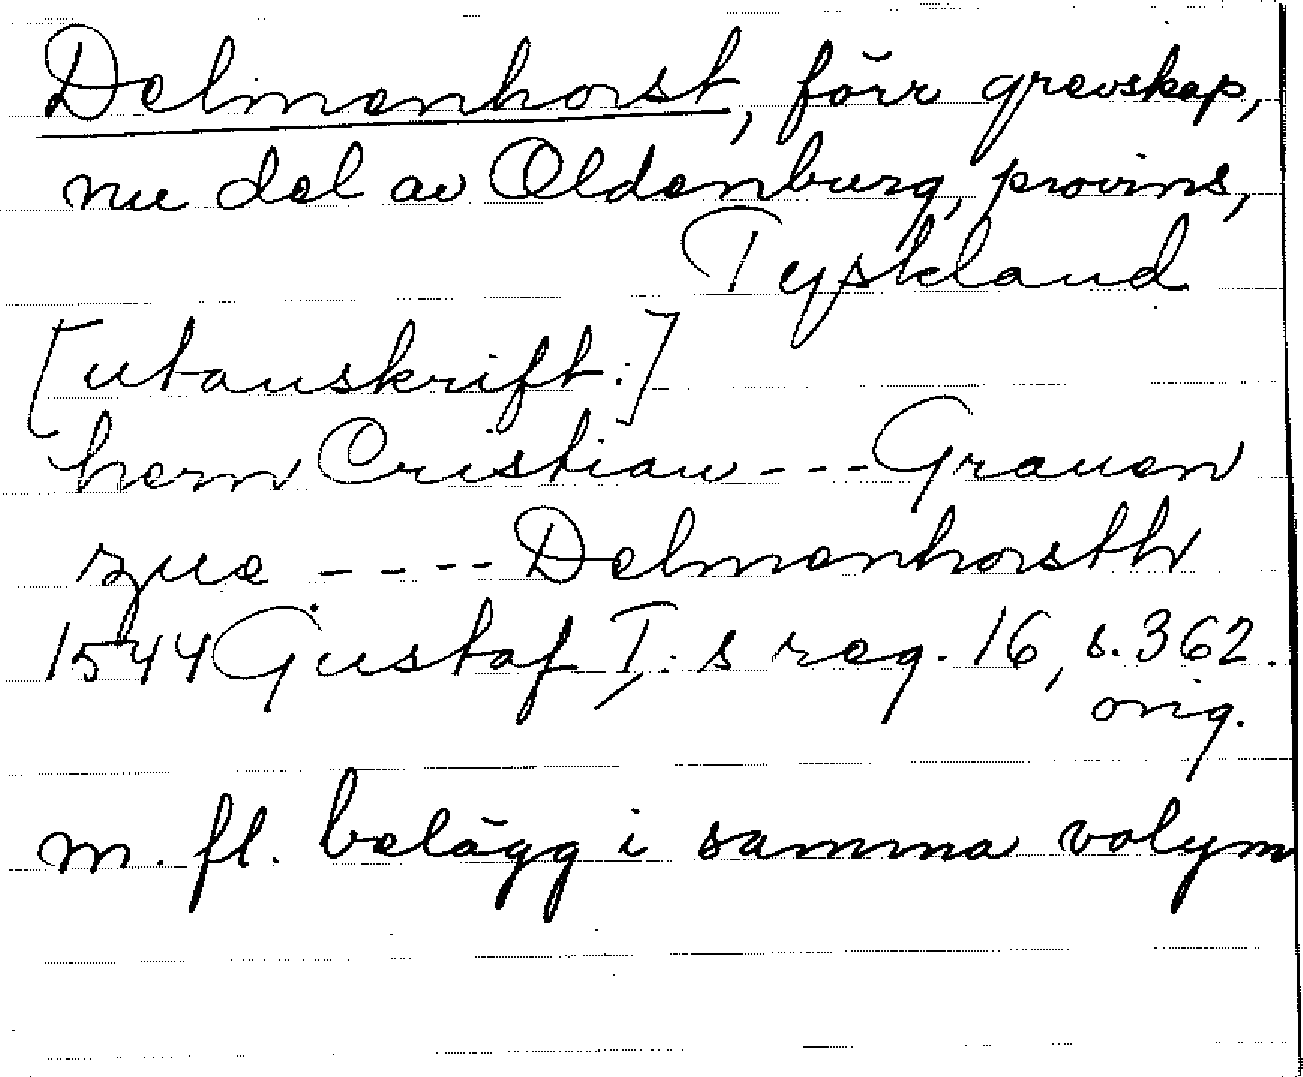 Delmenhorst, förr grevskap,
nu del av Oldenburg, provins,
Tyskland
[utanskrift:]
hern Cristian --- Grauen
zue ---- Delmenhorsth
1544 Gustaf I:s reg. 16, s. 362.
orig.
m. fl. belägg i samma volym